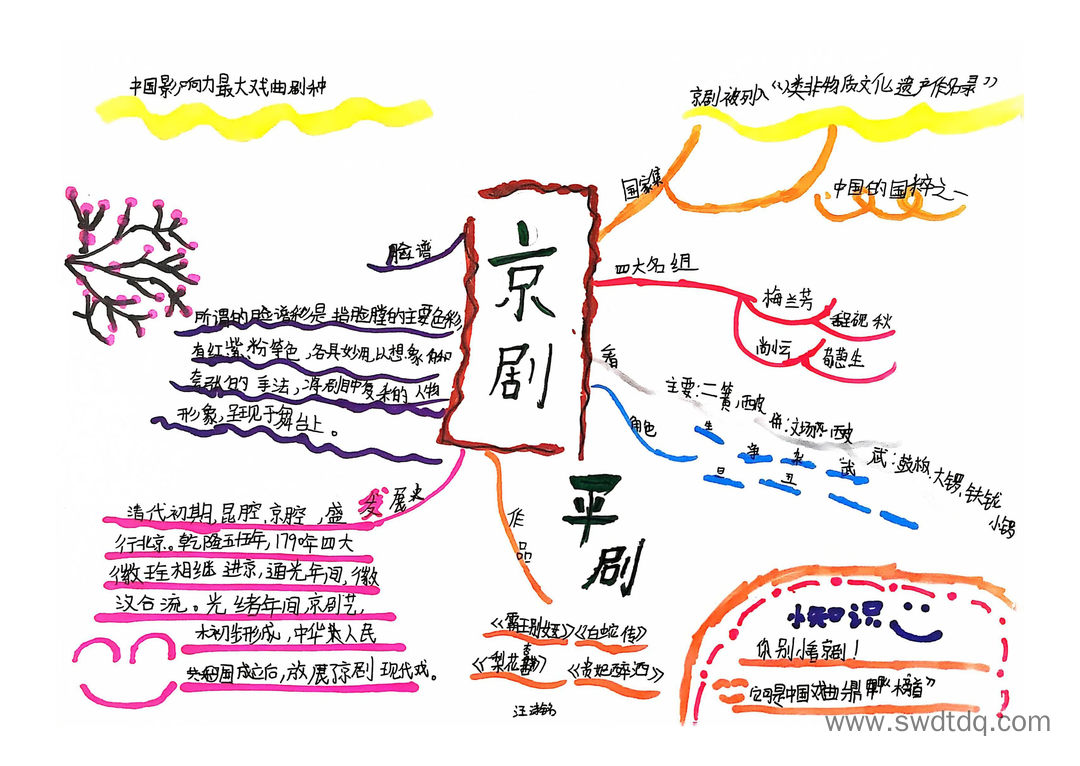 中国影响力最大戏曲剧种
京剧被列入《
类非物质文化遗产作名录》
国家集
中国的国粹之一
京
剧
平
剧
脸谱
所谓的脸谱
是指脸膛的主要色彩
有红紫、粉等色,各具妙用,以想象和
夸张的手法,将剧中复杂的人物
形象,呈现于舞台上。
四大名组
梅兰芳
秋
尚
生
看
主要:二簧,西皮
武:鼓板,大锣,铁钹
小锣
角色
生
旦
净
丑
杂
武
发展史
清代初期,昆腔,京腔,盛
行北京。乾隆五十五年,1790年四大
徽班相继进京,道光年间,徽
汉合流。光绪年间京剧艺
术初步形成,中华人民
共和国成立后,放展了京剧现代戏。
作品
《霸王别姬》《白蛇传》
《梨花
《贵妃醉酒》
汪
小知识
你别小看京剧!
它可是中国戏曲
www.swdtdq.com